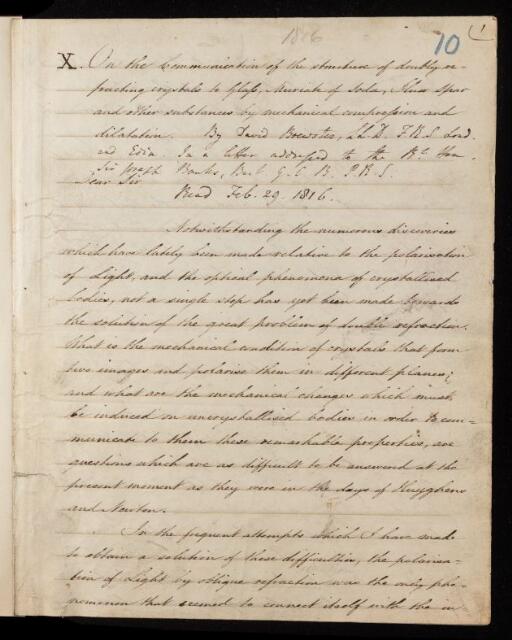 1816
10
1
X. On the Communication of the structure of doubly re-
fracting crystals to Glass, Muriate of Soda, Fluor Spar
and other substances by mechanical compression and
dilatation. By David Brewster, LL.D. F.R.S. Lond.
and Edin. In a letter addressed to the Rt. Hon.
Sir Joseph Banks, Bart. G.C.B. P.R.S.
Dear Sir
Read Feb. 29. 1816.
Notwithstanding the numerous discoveries
which have lately been made relative to the polarisation
of Light, and the optical phenomena of crystallised
bodies, not a single step has yet been made towards
the solution of the great problem of double refraction.
What is the mechanical condition of crystals that form
two images and polarise them in different planes;
and what are the mechanical changes which must
be induced on uncrystallised bodies in order to com=
municate to them these remarkable properties, are
questions which are as difficult to be answered at the
present moment as they were in the days of Huyghens
and Newton.
In the frequent attempts which I have made
to obtain a solution of these difficulties, the polarisa-
tion of Light by oblique refraction was the only phe-
nomenon that seemed to connect itself with the in-